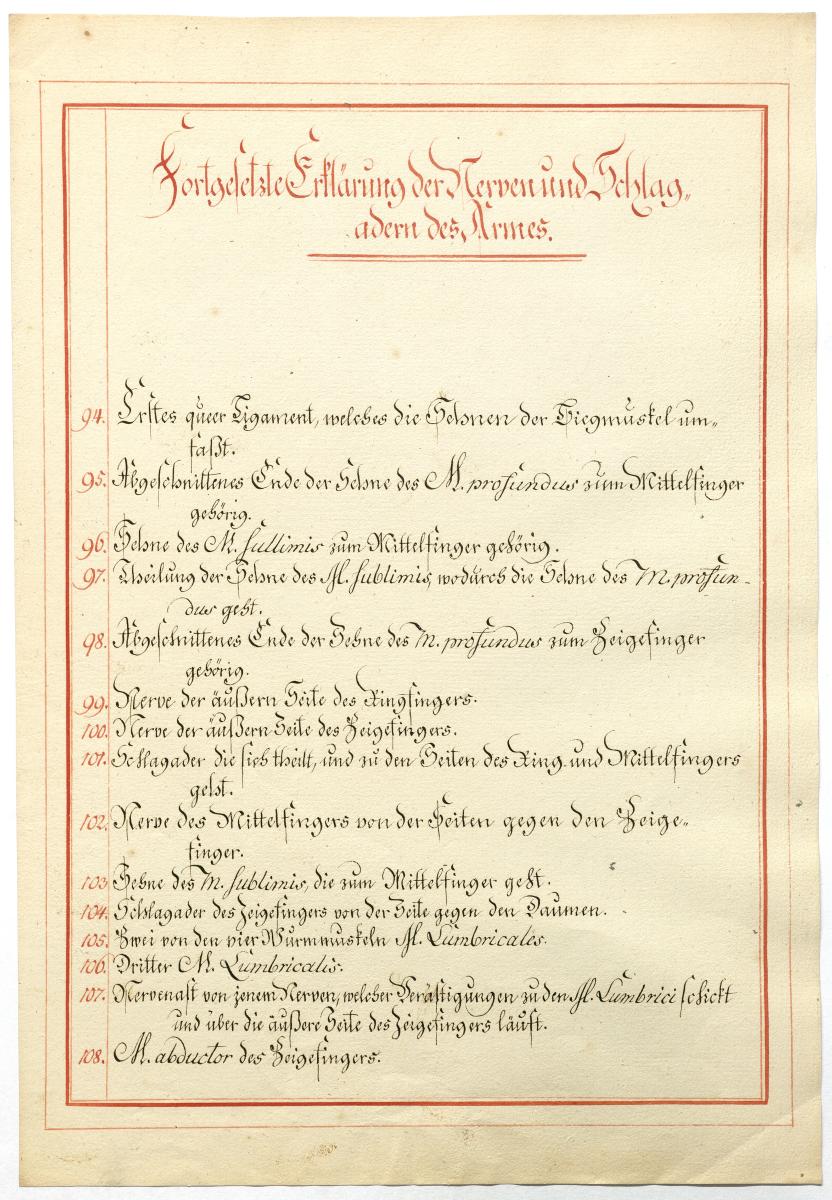 Fortgesetzte Erklärung der Nerven und Schlag„
adern des Armes.
94. Erstes queer Ligament, welches die Sehnen der Biegmuskel um„
faßt.
95. Abgeschnittenes Ende der Sehne des M. profundus zum Mittelfinger
gehörig.
96. Sehne des M. sullimis zum Mittelfinger gehörig.
97. Theilung der Sehne des M. sublimis, wodurch die Sehne des M. profun-
dus geht.
98. Abgeschnittenes Ende der Sehne des M. profundus zum Zeigefinger
gehörig.
99. Nerve der äußern Seite des Ringfingers.
100. Nerve der äußern Seite des Zeigefingers.
101. Schlagader die sich theilt, und zu den Seiten des Ring und Mittelfingers
geht.
102. Nerve des Mittelfingers von der Seiten gegen den Zeige„
finger.
103 Sehne des M. sublimis, die zum Mittelfinger geht.
104. Schlagader des Zeigefingers von der Seite gegen den Daumen.
105. Zwei von den vier Wurmmuskeln M. Lumbricales.
106. Dritter M. Lumbricalis.
107. Nervenast von jenem Nerven, welcher Verästigungen zu den M. Lumbrici schickt
und über die äußere Seite des Zeigefingers läuft.
108. M. abductor des Zeigefingers.